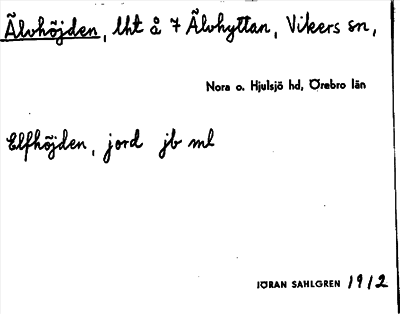 Älvhöjden, lht å 7 Älvhyttan, Vikers sn,
Nora o. Hjulsjö hd, Örebro län
Elfhöjden, jord jb ml
JÖRAN SAHLGREN 1912